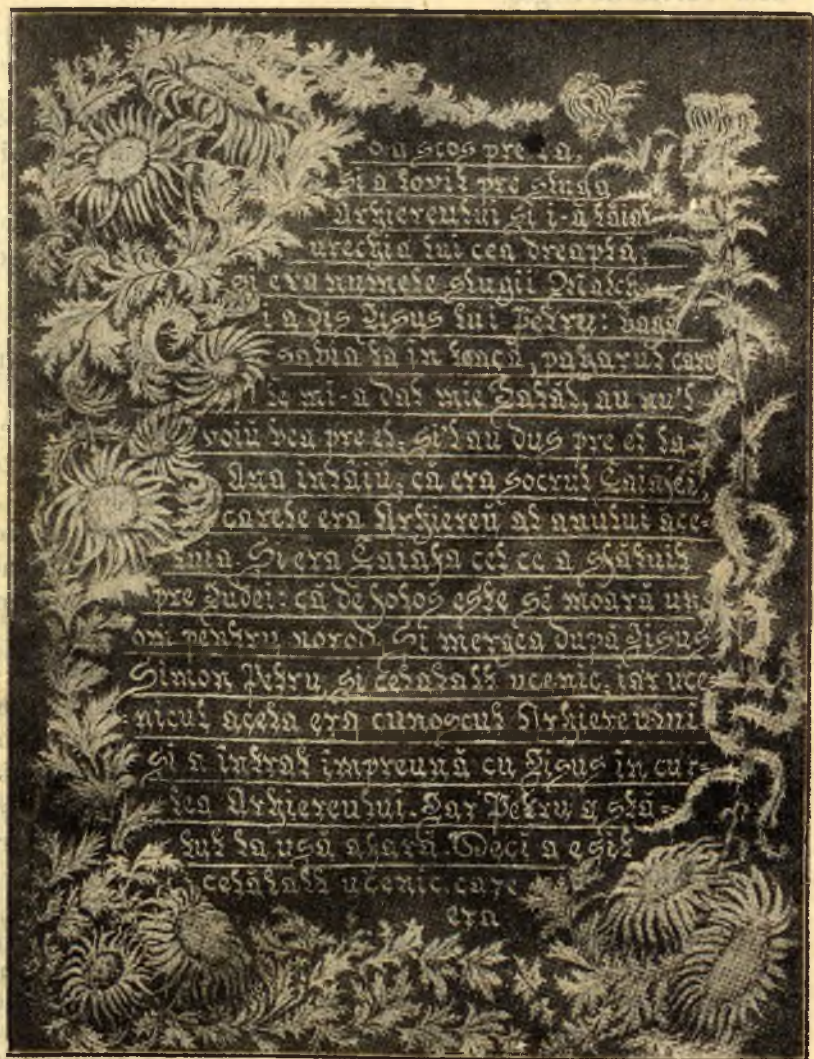 o a scos pre ea,
și a lovit pre sluga
Arhiereului și i-a tăiat
urechia lui cea dreaptă;
și era numele slugii Malch
i a dis Iisus lui Petru: bagă
sabia ta in teacă, paharul care
le mi-a dat mie Tatăl, au nu'l
voiŭ bea pre el. și'l au dus pre el la
Ana intăiŭ, că era socrul Caiafei,
carele era Arhiereŭ al anului ace-
Și era Caiafa cel ce a sfătuit
pre Iudei: că de folos este sĕ moară un
om pentru norod. Și mergea după Iisus
Simon Petru, și celalalt ucenic, iar uce-
nicul acela era cunoscut Arhiereului
și a intrat impreună cu Iisus in cur-
tea Arhiereului. Iar Petru a stă-
tut la ușă afară. Deci a eșit
celălalt ucenic, care
era